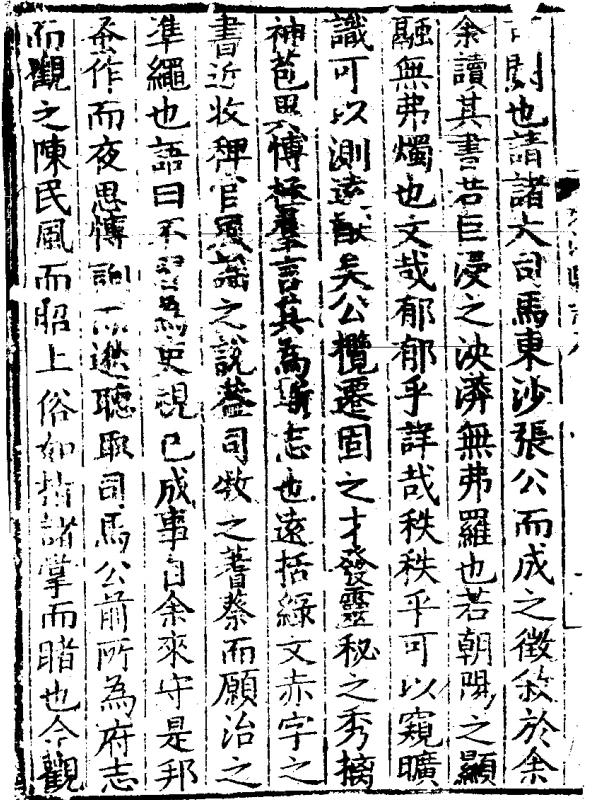 也請諸大司馬東沙張公而成之徵敘於余
余讀其書若巨浸之泱漭無弗羅也若朝陽之顯
融無弗燭也文哉郁郁乎詳哉秩秩乎可以窺曠
識可以測遠猷矣公攬遷固之才發靈秘之秀摛
神芭思博極羣言其為志也遠括綠文赤字之
書近收稗官風謠之說蓋司牧之蓍蔡而願治之
準繩也語曰不習為吏視已成事自余來守是邦
蚤作而夜思博詢而遜聽取司馬公前所為府志
而觀之陳民風而昭上俗如指諸掌而睹也今觀